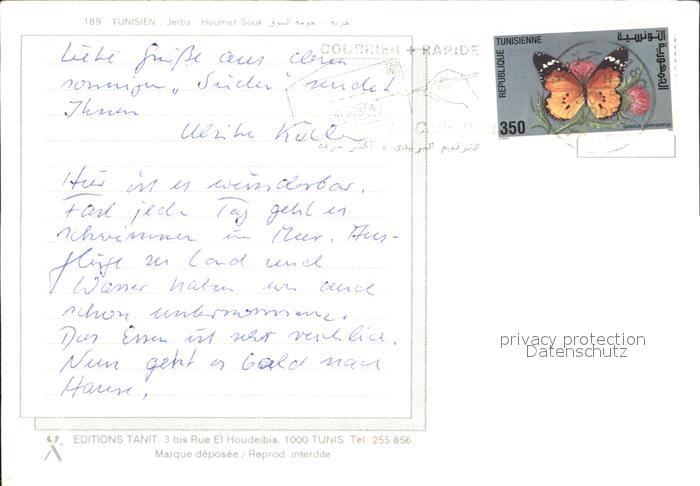 189 - TUNISIEN : Jerba - Houmet Souk جربة - حومة السوق
Liebe Grüße aus dem
sonnigen „Süden" sendet
Ihnen
Ulrike
COURRIER + RAPIDE
الترقيم البريدي = أكثر سرعة
REPUBLIQUE TUNISIENNE
الجمهورية التونسية
350
Hier ist es wunderbar.
Fast jeden Tag geht es
schwimmen im Meer. Aus-
flüge zu Land und
Wasser haben wir auch
schon unternommen.
Das Essen ist sehr reichlich.
Nun geht es bald nach
Hause.
privacy protection
Datenschutz
EDITIONS TANIT. 3 bis Rue El Houdeibia. 1000 TUNIS. Tél: 255 856
Marque déposée / Reprod. interdite